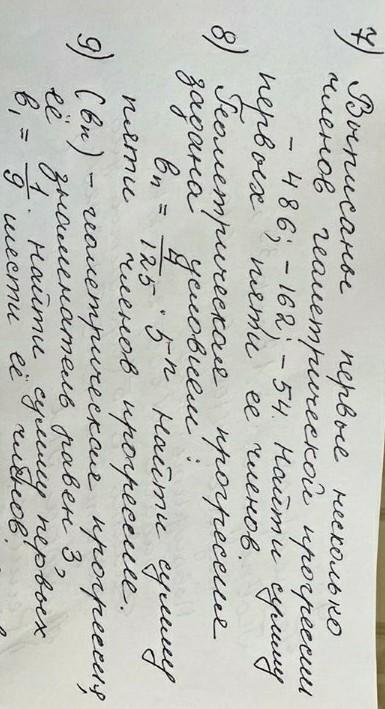 7) Выписаны первые несколько
членов геометрической прогрессии
- 486; - 162; - 54. Найти сумму
первых пяти ее членов.
8) Геометрическая прогрессия
задана условием:
bn = 4/125 · 5^n найти сумму
пяти членов прогрессие.
9) (bn) - геометрическая прогрессия,
её знаменатель равен 3,
b1 = 1/9. найти сумму первых
шести её членов.